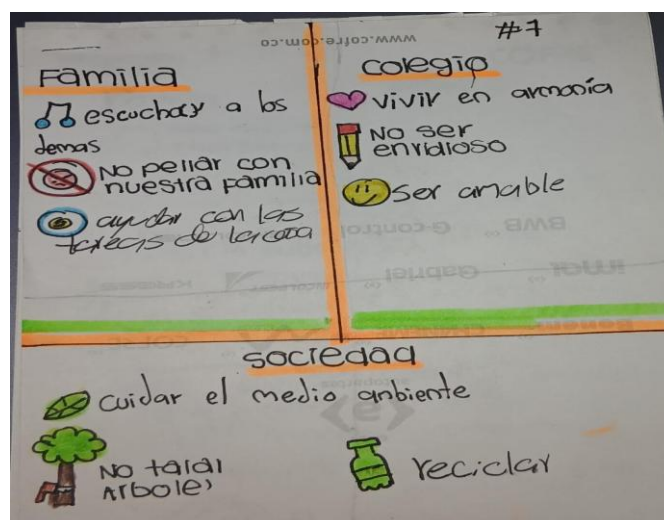 www.cofre.com.co
#7
Familia
escuchar a los
demas
No peliar con
nuestra familia
ayudar con las
tareas de la casa
colegio
vivir en armonía
No ser
envidioso
ser amable
BWB
G-control
imal
Gabriel
sociedad
cuidar el medio anbiente
No talar
Arboles
reciclar